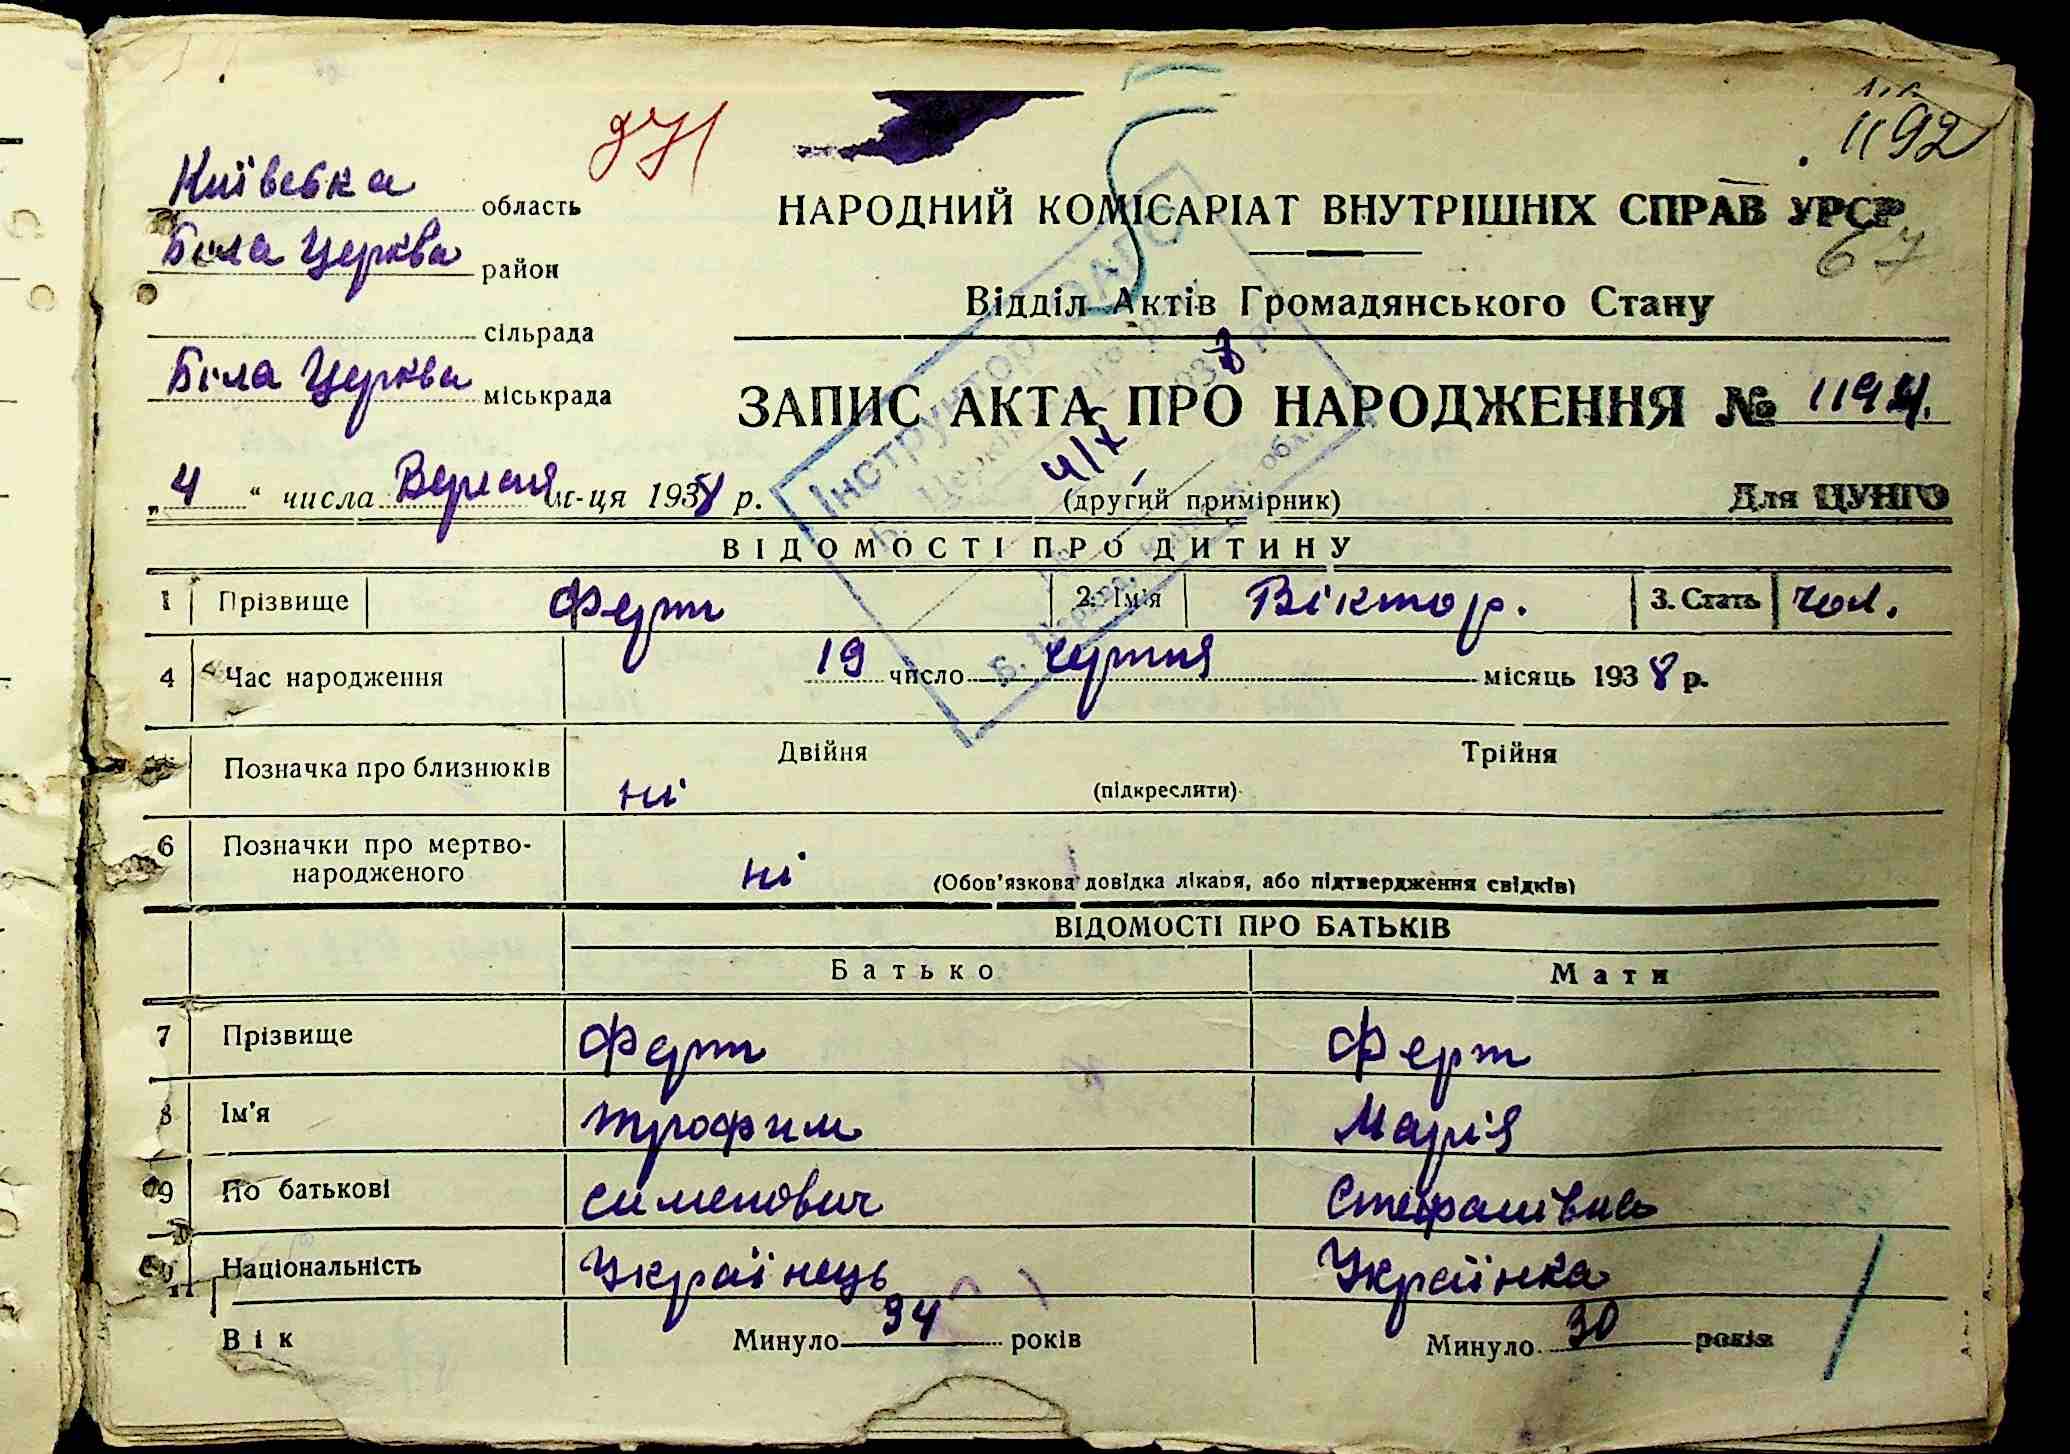 1192
Київська область
Біла Церква район
сільрада
Біла Церква міськрада
НАРОДНИЙ КОМІСАРІАТ ВНУТРІШНІХ СПРАВ УРСР
67
Відділ Актів Громадянського Стану
ЗАПИС АКТА ПРО НАРОДЖЕННЯ № 1194.
„ 4 “ числа Вересня м-ця 1938 р.
(другий примірник)
Для ЦУНГО
ВІДОМОСТІ ПРО ДИТИНУ
1 Прізвище Ферт 2. Ім'я Віктор. 3. Стать чол.
4 Час народження 19 число серпня місяць 1938 р.
Позначка про близнюків ні Двійня Трійня
(підкреслити)
6 Позначки про мертво-
народженого ні (Обов'язкова довідка лікаря, або підтвердження свідків)
ВІДОМОСТІ ПРО БАТЬКІВ
Батько Мати
7 Прізвище Ферт Ферт
8 Ім'я Трофим Марія
9 По батькові Сименович Стефанівна
Національність Українець Українка
Вік Минуло 34 років Минуло 30 років